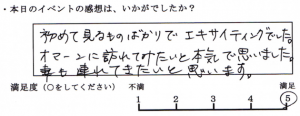 ・本日のイベントの感想は、いかがでしたか？
初めて見るものばかりで エキサイティングでした。
オマーンに訪れてみたいと本気で思いました。
車も連れてきたいと思います。
満足度（○をしてください） 不満 満足
1 2 3 4 5